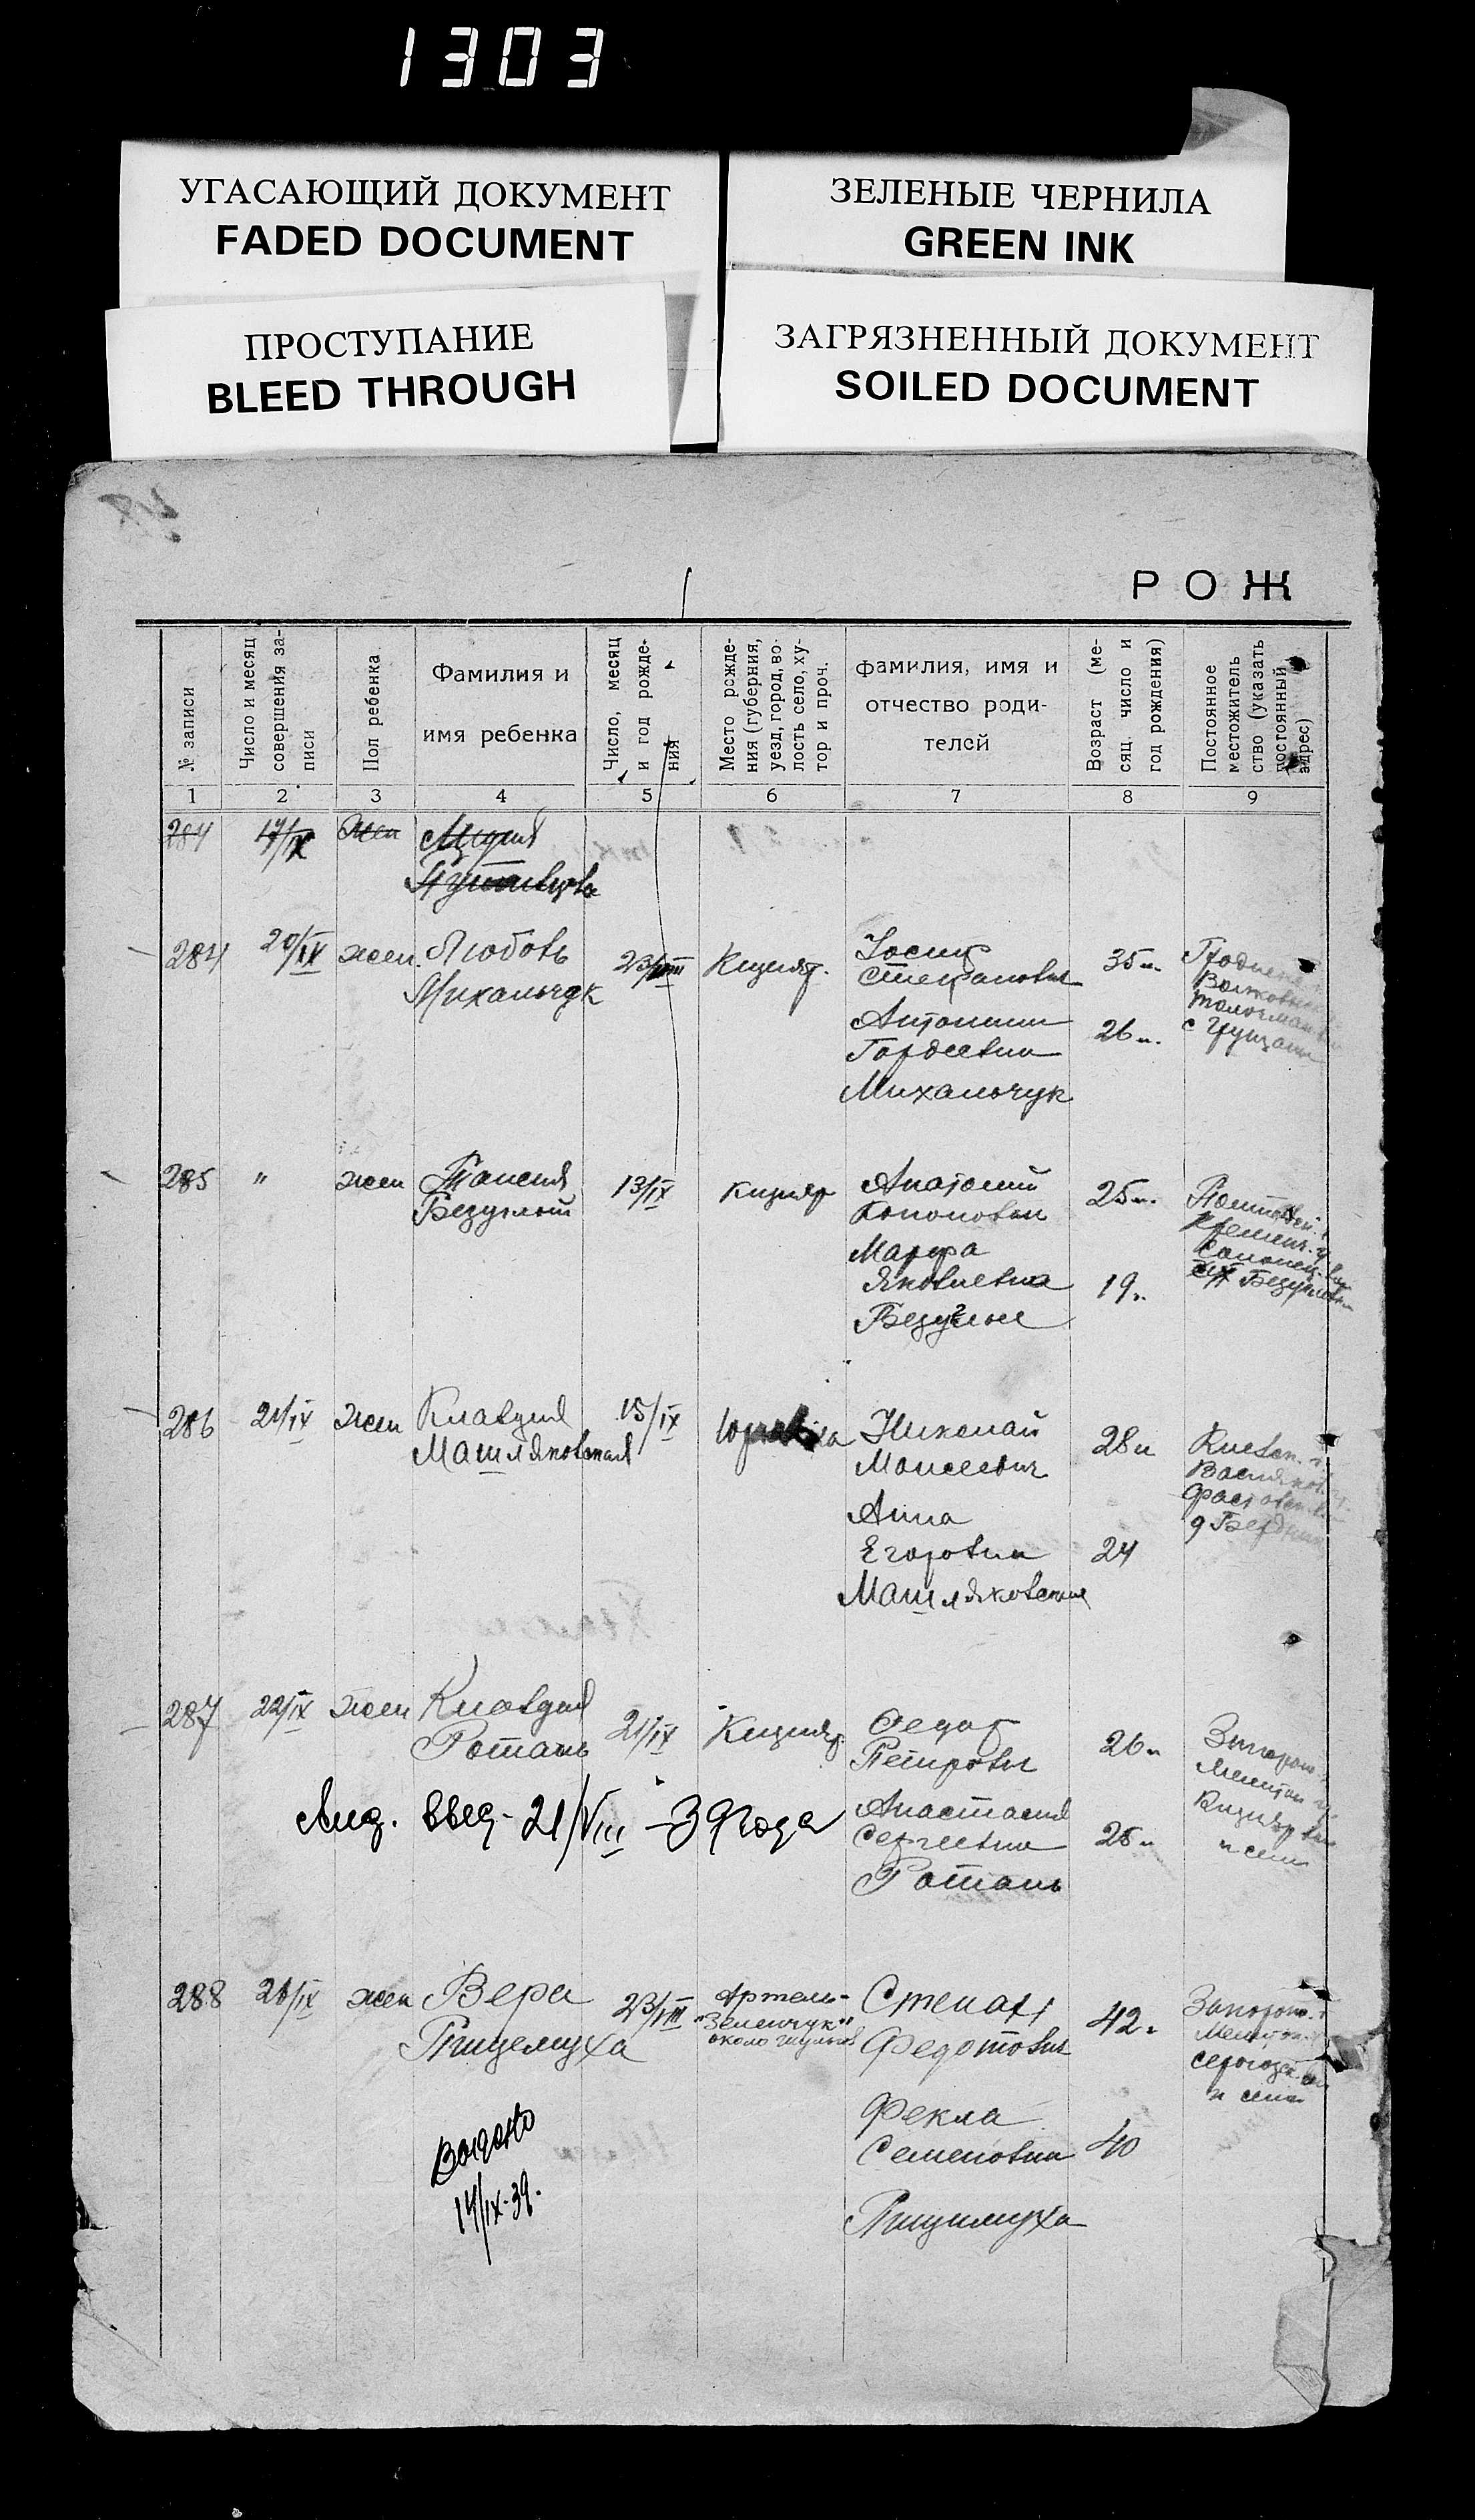 1303
УГАСАЮЩИЙ ДОКУМЕНТ
FADED DOCUMENT
ЗЕЛЕНЫЕ ЧЕРНИЛА
GREEN INK
ПРОСТУПАНИЕ
BLEED THROUGH
ЗАГРЯЗНЕННЫЙ ДОКУМЕНТ
SOILED DOCUMENT
РОЖ
№ записи
Число и месяц
совершения за-
писи
Пол ребенка
Фамилия и
имя ребенка
Число, месяц
и год рожде-
ния
Место рожде-
ния (губерния,
уезд, город, во-
лость село, ху-
тор и проч.
Фамилия, имя и
отчество роди-
телей
Возраст (ме-
сяц. число и
год рождения)
Постоянное
местожитель
ство (указать
постоянный
адрес)
1 2 3 4 5 6 7 8 9
284 17/IX жен
284 20/IX жен. Любовь
Михальчук
23/VIII Кизияр.
Иосиф
Степанович
35 л.
Антонина
Гордеевна
26 л.
Михальчук
с Грущани
285 " жен Таисия
Безуглый
13/IX Кизияр
Анатолий
Кононович
25 л.
Марфа
Яковлевна
19 л.
Безуглые
286 21/IX жен Клавдия
Машляковская
15/IX
Николай
Моисеевич
28 л
Анна
Егоровна
24
Машляковская
287 22/IX жен Клавдия
Ротань
21/IX Кизияр.
Федор
Петрович
26 л
Анастасия
Сергеевна
25 л
Ротань
21/VIII - 39 года
288 21/IX жен Вера
Птицемуха
23/VIII
Артель-
"Зеленчук"
около
Степан
Федотович
42 л
Фекла
Семеновна
40
Птицемуха
Запорож. г
Мелитоп.
и села
Выдано
14/IX-39.